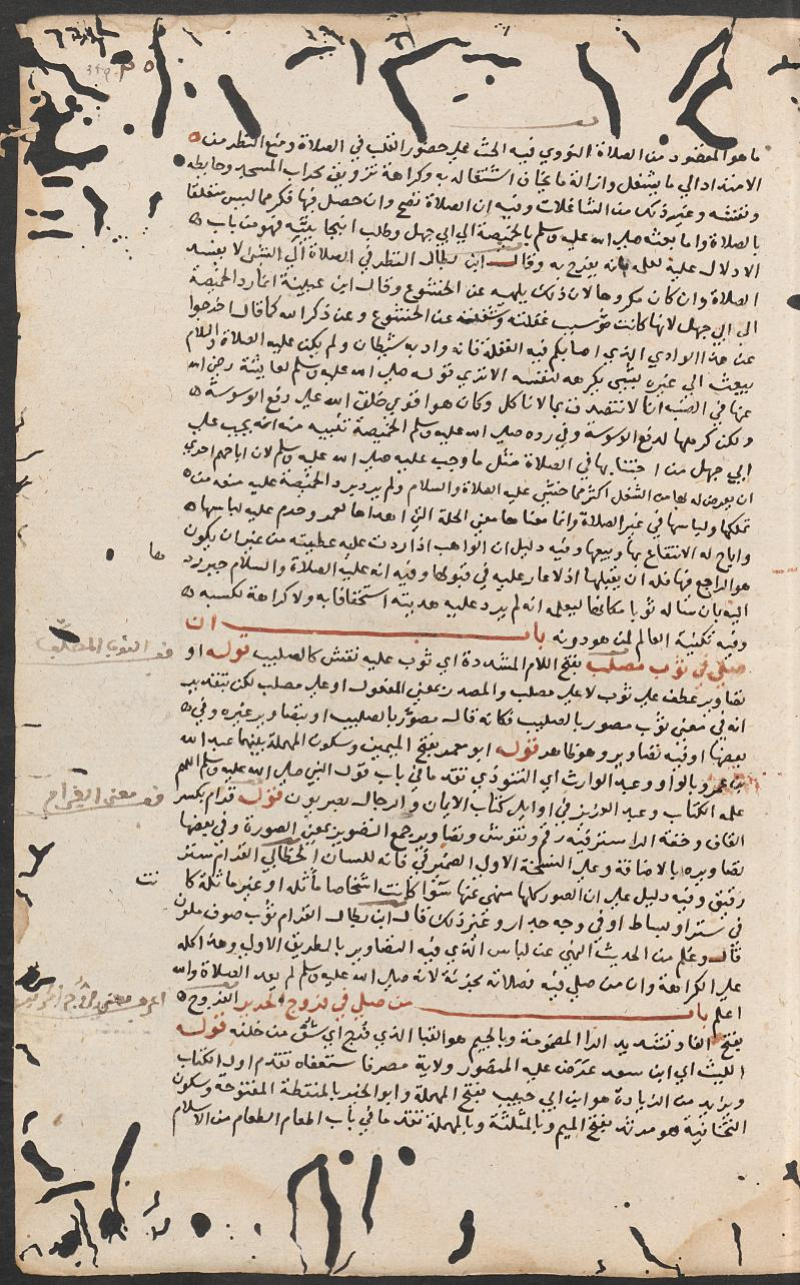 ما هو المقصود من الصلاة النووي فيه الحث على حضور القلب في الصلاة ومنع النظر من
الامتداد الي ما يشغل وازالة ما يخاف اشتغاله به وكراهة تزويق محراب المسجد وحايطه
ونقشه وغير ذلك من الشاغلات وفيه ان الصلاة تصح وان حصل فيها فكر مما ليس متعلقا
بالصلاة واما بعثه صلى الله عليه وسلم بالخميصة الي ابي جهل وطلب انبجانيته فهو من باب
الادلال عليه لعله بانه يفرح به وقال ابن بطال النظر في الصلاة الي الشئ لا يفسد
الصلاة وان كان مكروها لان ذلك يلهيه عن الخشوع وقال ابن عيينة انما رد الخميصة
الي ابي جهل لانها كانت سبب غفلته وشغلته عن الخشوع وعن ذكر الله كما قال اخرجوا
عن هذا الوادي الذي اصابكم فيه الغفلة فانه واد به شيطان ولم يكن عليه الصلاة والسلام
يبعث الي غيره بشئ يكرهه لنفسه الا تري قوله صلى الله عليه وسلم لعايشة رضي الله
عنها في الضب انا لا نتصدق بما لا ناكل وكان هو اقوي خلق الله على دفع الوسوسة
ولكن كرهها لدفع الوسوسة وفي رده صلى الله عليه وسلم الخميصة تنبيه منه انه يجب على
ابي جهل من اجتنابها في الصلاة مثل ما وجب عليه صلى الله عليه وسلم لان ابا جهم احري
ان يعرض له بها من الشغل اكثر مما خشي عليه الصلاة والسلام ولم يرد برد الخميصة عليه منعه من
تملكها ولباسها في غير الصلاة وانما معناها معنى الحلة التي اهداها لعمر وحرم عليه لباسها
واباح له الانتفاع بها وبيعها وفيه دليل ان الواهب اذا ردت عليه عطيته من غير ان يكون
هو الراجع فيها فله ان يقبلها اذ لا عار عليه في قبولها وفيه انه عليه الصلاة والسلام جبر رد
ها
اليه بان ساله ثوبا مكانها ليعلمه انه لم يرد عليه هديته استخفافا به ولا كراهة لكسبه
وفيه تكنية العالم لمن هو دونه باب ان
صلي في ثوب مصلب بفتح اللام المشددة اي ثوب عليه نقش كالصليب قوله او
تصاوير عطف على ثوب لا على مصلب والمصدر بمعني المفعول او على مصلب لكن بتقدير
انه في معني ثوب مصور بالصليب فكانه قال مصور بالصليب او بتصاوير غيره وفي
بعضها او فيه تصاوير وهو ظاهر قوله ابو معمر بفتح الميمين وسكون المهملة بينهما عبد الله
بن عمرو بالواو وعبد الوارث اي التنوري تقدما في باب قول النبي صلى الله عليه وسلم اللهم
علمه الكتاب وعبد العزيز في اوايل كتاب الايمان والرجال بصريون قوله قرام بكسر
فف معني القرام
القاف وخفة الراء ستر فيه رقم ونقوش وتصاوير جمع التصوير بمعني الصورة وفي بعضها
تصاويره بالاضافة وعلى النسخة الاولي الضمير في فانه للشان الخطابي القرام ستر
رقيق وفيه دليل على ان الصور كلها منهي عنها سوا كانت اشخاصا ماثلة او غير ماثلة كا
نت
في ستر او بساط او في وجه جدار وغير ذلك قال ابن بطال القرام ثوب صوف ملون
قال وعلم من الحديث النهي عن لباس الذي فيه التصاوير بالطريق الاولي وهذا كله
على الكراهة وان من صلى فيه فصلاته مجزئة لانه صلى الله عليه وسلم لم يعد الصلاة والله
اعلم باب من صلى في فروج الحرير الفروج
بفتح الفا وتشديد الرا المضمومة وبالجيم هو القبا الذي فرج اي شق من خلفه قوله
الليث اي ابن سعد عرض عليه المنصور ولاية مصر فاستعفاه تقدم اول الكتاب
ويزيد من الزيادة هو ابن ابي حبيب بفتح المهملة وابو الخير بالمنقطة المفتوحة وسكون
التحتانية هو مرثد بفتح الميم وبالمثلثة وبالمهملة تقدما في باب اطعام الطعام من الاسلام